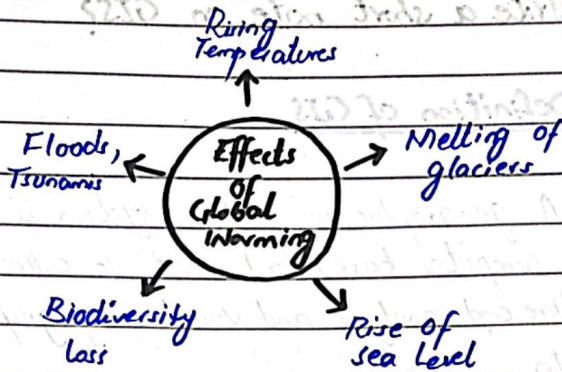 Rising
Temperatures
Floods,
Tsunamis
Effects
of
Global
Warming
Melting of
glaciers
Biodiversity
loss
Rise of
sea Level